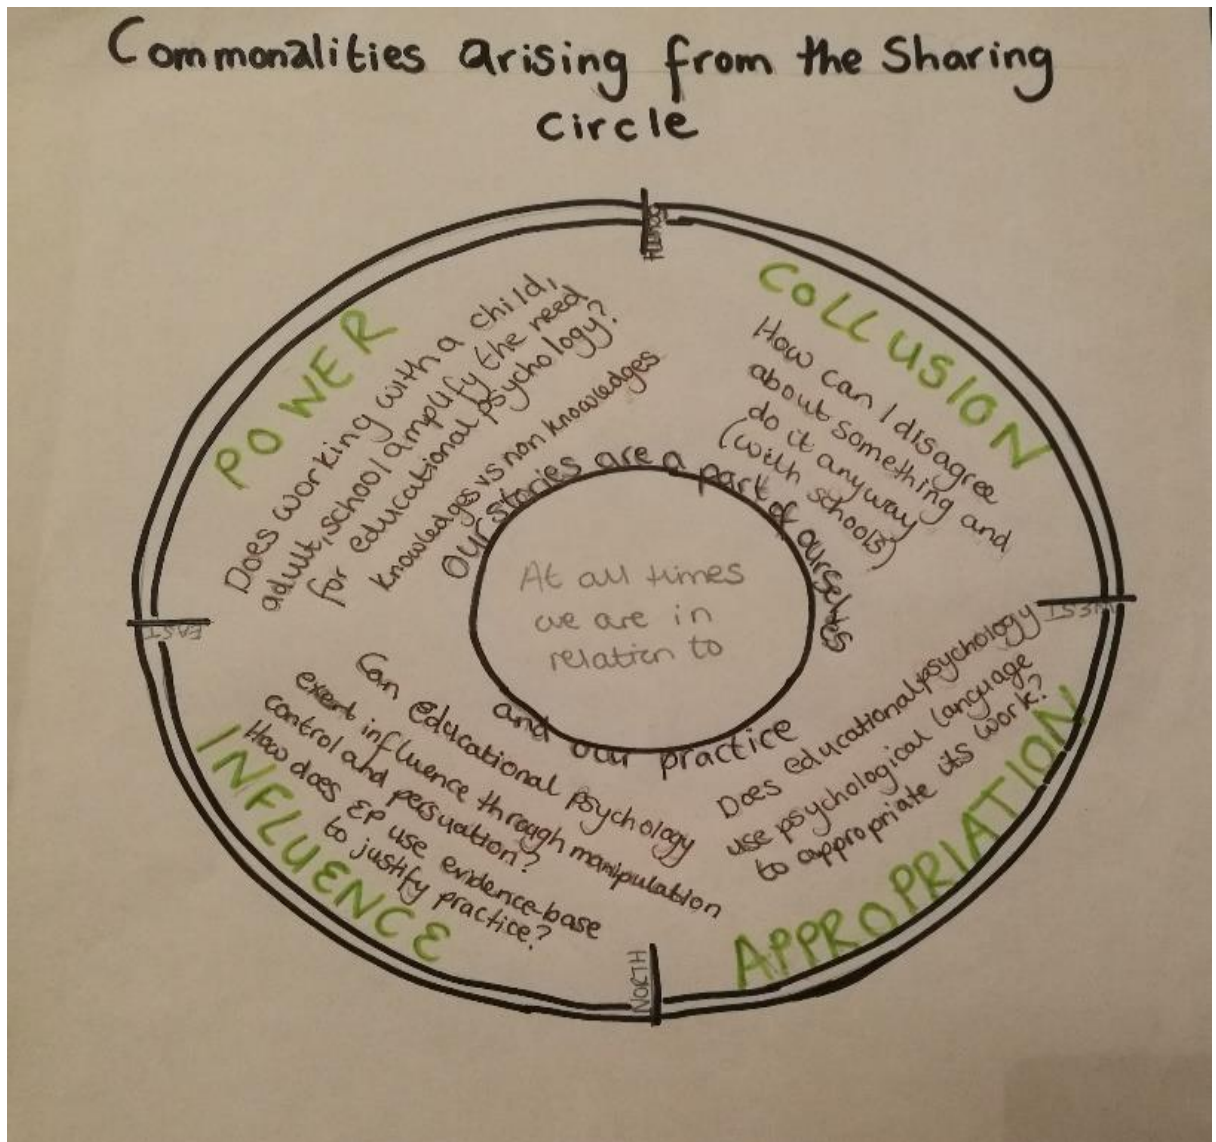 Commonalities arising from the Sharing
circle
SOUTH
POWER
Does working with a child,
adult, school amplify the need
for educational psychology?
Knowledges vs non knowledges
COLLUSION
How can I disagree
about something and
do it anyway
(with schools)
Our stories are a part of ourselves
At all times
we are in
relation to
and our practice
EAST
WEST
Can educational psychology
exert influence through manipulation
control and persuation?
How does EP use evidence-base
to justify practice?
INFLUENCE
Does educational psychology
use psychological language
to appropriate its work?
APPROPRIATION
NORTH